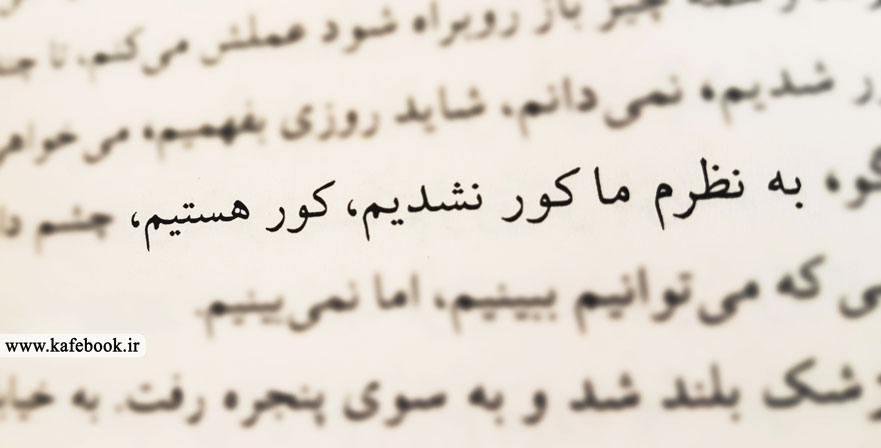 چیز باز روبراه شود عملش می‌کنم. تا
شدیم، نمی‌دانم، شاید روزی بفهمیم، می‌خواهی
به نظرم ما کور نشدیم، کور هستیم، چشم
که می‌توانیم ببینیم، اما نمی‌بینیم.
بلند شد و به سوی پنجره رفت. به
www.kafebook.ir